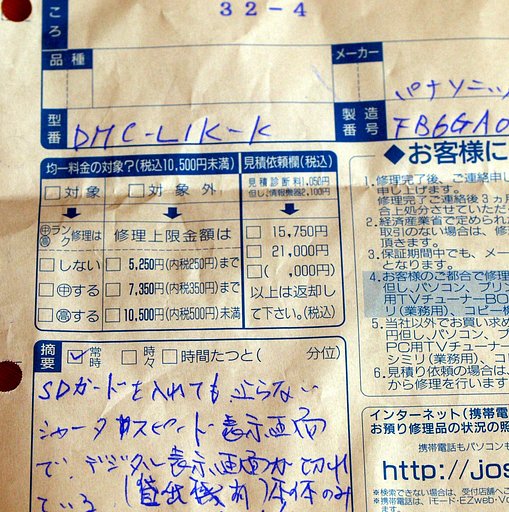 32-4
ころ
品種
メーカー
パナソニック
型番
DMC-L1K-K
製造番号
FB6GA0
均一料金の対象?(税込10,500円未満)
見積依頼欄(税込)
□対象 □対象外
見積診断料1,050円
但し、情報機器2,100円
中高ランク修理は
修理上限金額は
□しない
□5,250円(内税250円)まで
□中する
□7,350円(内税350円)まで
□高する
□10,500円(内税500円)未満
□ 15,750円
□ 21,000円
□( ,000円)
以上は返却し
て下さい。(税込)
◆お客様に
1.修理完了後、ご連絡申し
申し上げます。
修理完了ご連絡後3ヵ月
合上処分させていただ
2.経済産業省で定められた
取引のない場合は、修
頂きます。
3.保証期間中でも、メー
となります。
4.お客様のご都合で修理
但し、パソコン、プリン
用TVチューナーBO
リ(業務用)、コピー機
5.当社以外でお買い求め
円但し、パソコン、プ
PC用TVチューナー
シミリ(業務用)、コ
6.見積り依頼の場合は、
から修理を行います
摘要
☑常時 □時々 □時間たつと( 分位)
SDカードを入れても止らない
シャータースピード表示画面
で、デジタル表示画面が切れ
ている
(貸出機有)
本体のみ
インターネット(携帯電
お預り修理品の状況の照
携帯電話もパソコンも
http://jos
※検索できない場合は、受付店舗へご
※携帯電話は、iモード・EZweb・Vo
ます。